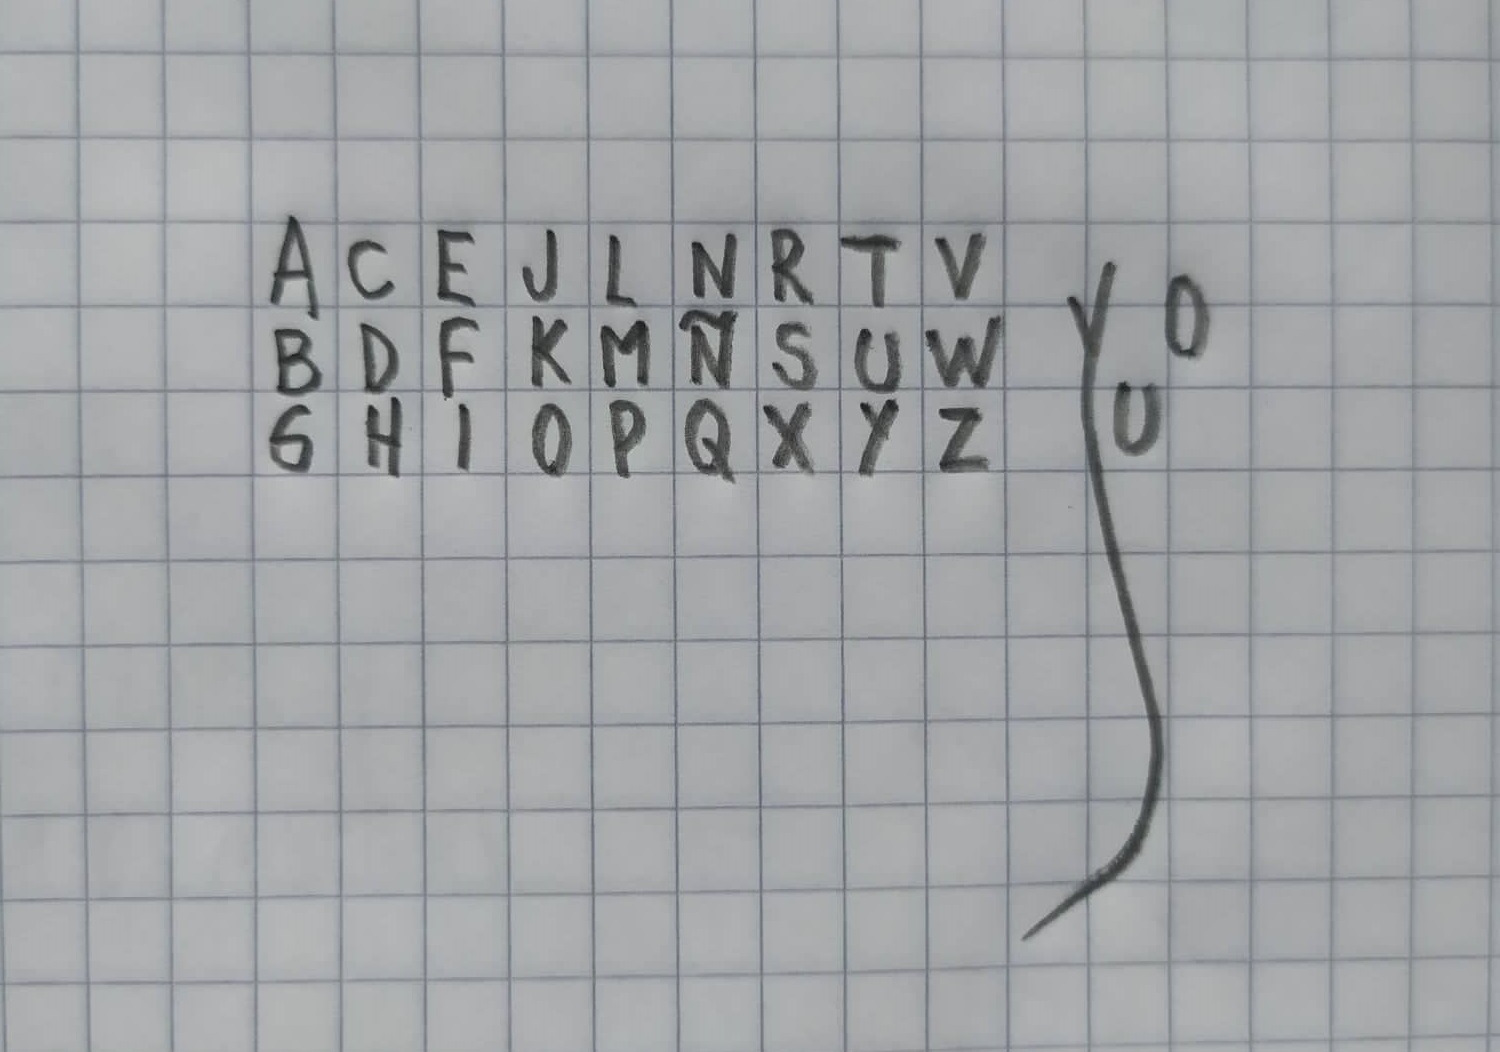 A C E J L N R T V
B D F K M Ñ S U W
G H I O P Q X Y Z
Y O
U